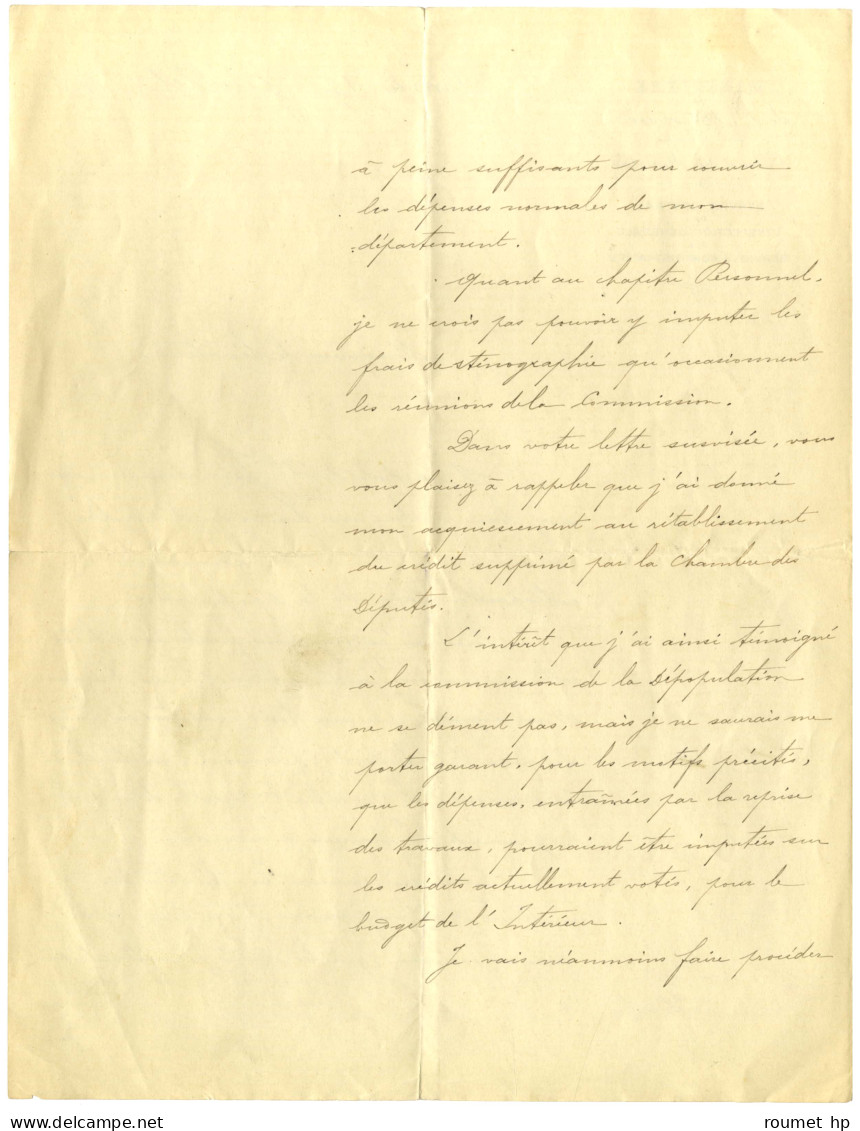 à peine suffisants pour couvrir
les dépenses normales de mon
département.
Quant au chapitre Personnel,
je ne crois pas pouvoir y imputer les
frais de sténographie qu'occasionnent
les réunions de la Commission.
Dans votre lettre susvisée, vous
vous plaisez à rappeler que j'ai donné
mon acquiescement au rétablissement
du crédit supprimé par la Chambre des
Députés.
L'intérêt que j'ai ainsi témoigné
à la commission de la Dépopulation
ne se dément pas, mais je ne saurais me
porter garant, pour les motifs précités,
que les dépenses, entraînées par la reprise
des travaux, pourraient être imputées sur
les crédits actuellement votés, pour le
budget de l'Intérieur.
Je vais néanmoins faire procéder
www.delcampe.net
roumet hp